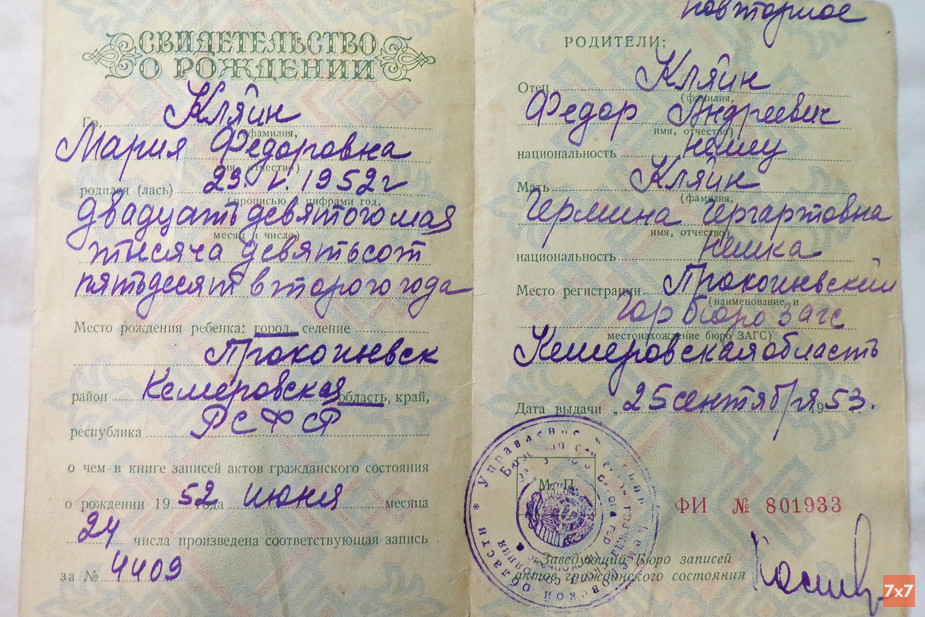 СВИДЕТЕЛЬСТВО
О РОЖДЕНИИ
Гр. Кляин
(фамилия,
Мария Федоровна
имя, отчество)
родился (лась) 29. V. 1952 г
(прописью и цифрами год,
двадцать девятого мая
месяц и число)
тысяча девятьсот
пятьдесят второго года
Место рождения ребенка: город, селение
Прокопьевск
район Кемеровская область, край,
республика РСФСР
о чем в книге записей актов гражданского состояния
о рождении 1952 года июня месяца
24 числа произведена соответствующая запись
за № 4409
повторное
РОДИТЕЛИ:
Отец Кляин
(фамилия,
Федор Андреевич
имя, отчество)
национальность немец
Мать Кляин
(фамилия,
Гермина Гергартовна
имя, отчество)
национальность немка
Место регистрации Прокопьевский
(наименование и
Гор бюро загс
местонахождение бюро ЗАГС)
Кемеровская область
Дата выдачи „25 сентября 1953.
М. П.
ФИ № 801933
Заведующий Бюро записей
актов гражданского состояния
7x7